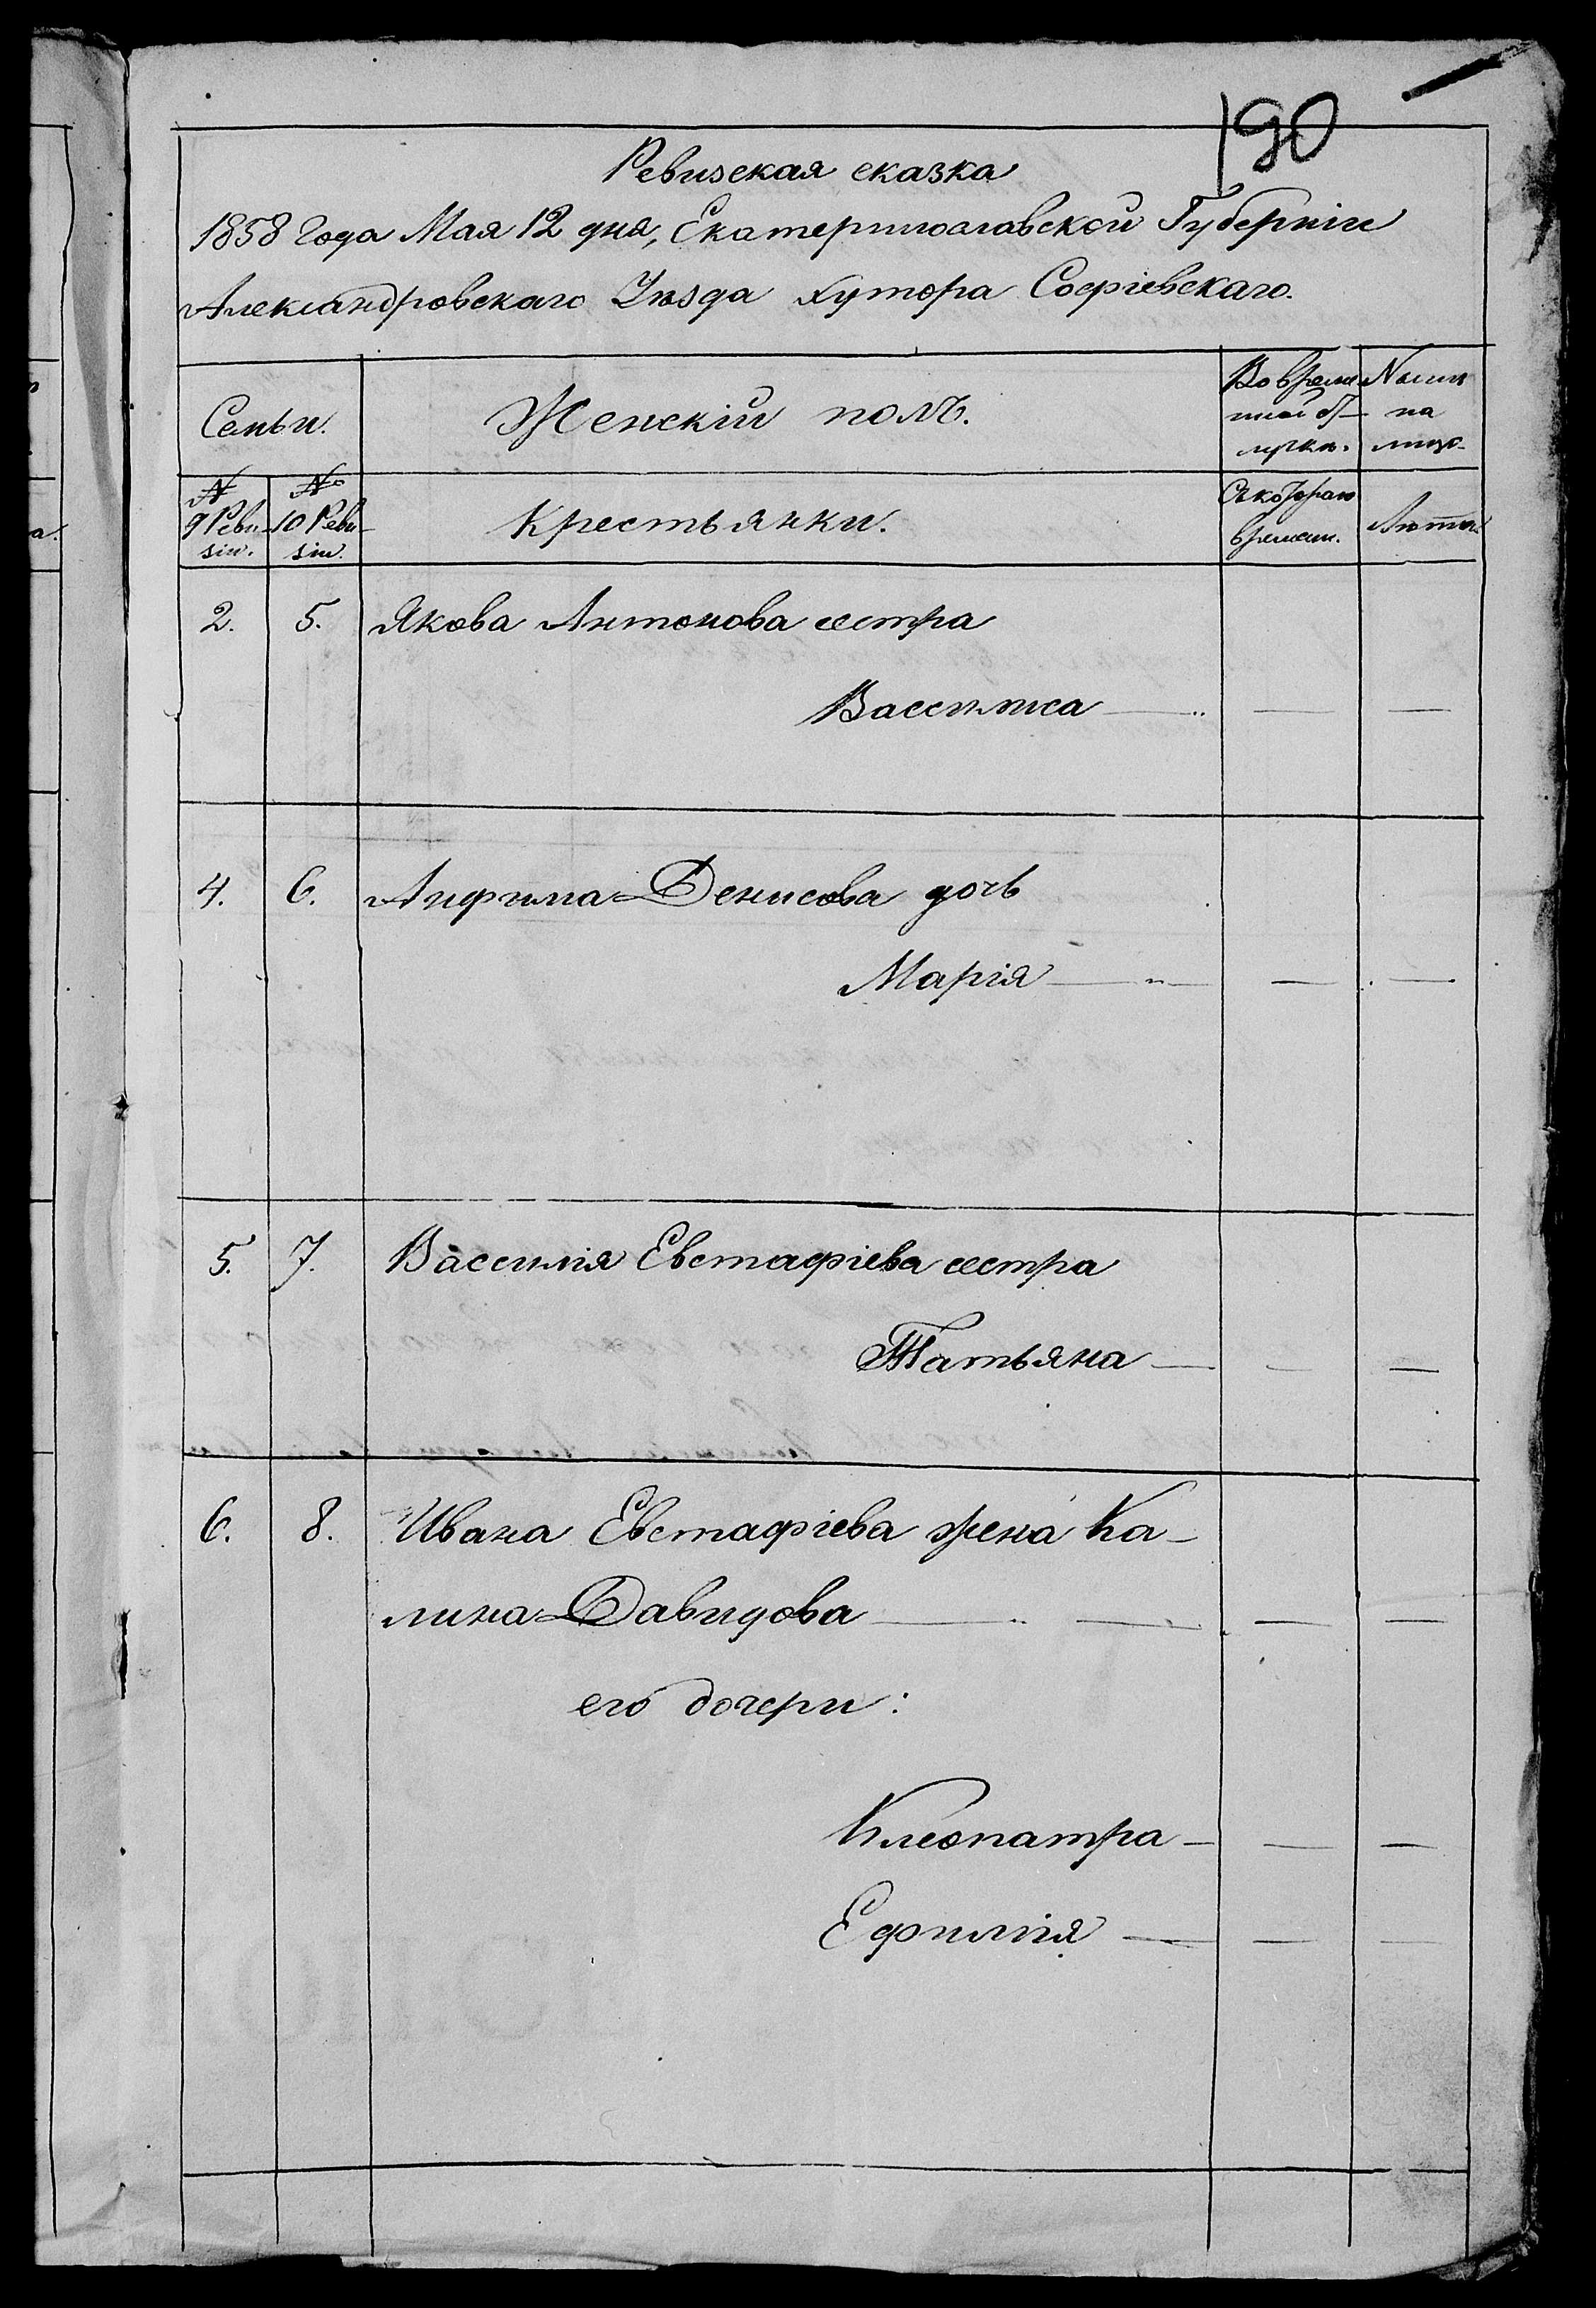 190
Ревизская сказка
1858 года Мая 12 дня, Екатеринославской Губерніи
Александровскаго Уѣзда хутора Софіевскаго.
Семьи.
Женскій полъ.
Во време-
нной от-
лучкѣ.
Нынѣ
на
лицо
№
9 Реви-
зіи.
№
10 Реви-
зіи.
Крестьянки.
Съ котораго
времени.
Лѣта.
2. 5. Якова Антонова сестра
Вассилиса — — —
4. 6. Анфима Денисова дочь
Марія — — —
5. 7. Вассилія Евстафіева сестра
Татьяна — — —
6. 8. Ивана Евстафіева жена Ка-
лина Давидова — — — —
его дочери:
Клеопатра — — —
Ефимія — — —
а.